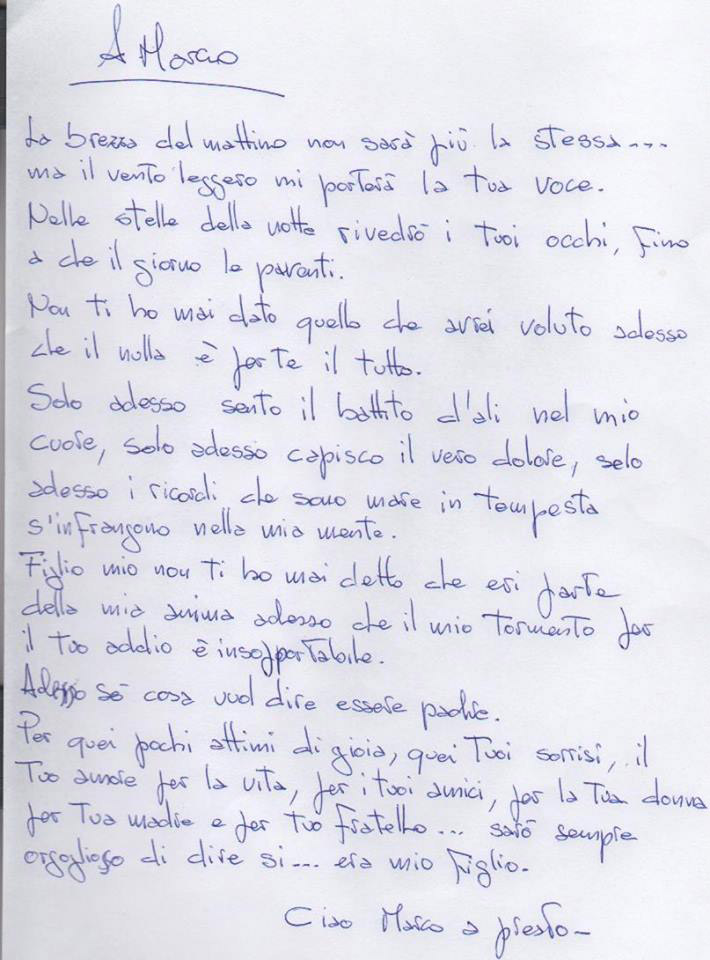 A Marco
La brezza del mattino non sarà più la stessa...
ma il vento leggero mi porterà la tua voce.
Nelle stelle della notte rivedrò i tuoi occhi, fino
a che il giorno le paventi.
Non ti ho mai dato quello che avrei voluto adesso
che il nulla è parte il tutto.
Solo adesso sento il battito d'ali nel mio
cuore, solo adesso capisco il vero dolore, solo
adesso i ricordi che sono mare in tempesta
s'infrangono nella mia mente.
Figlio mio non ti ho mai detto che eri parte
della mia anima adesso che il mio tormento per
il tuo addio è insopportabile.
Adesso sò cosa vuol dire essere padre.
Per quei pochi attimi di gioia, quei Tuoi sorrisi, il
Tuo amore per la vita, per i tuoi amici, per la Tua donna
per Tua madre e per tuo fratello... sarò sempre
orgoglioso di dire si... era mio figlio.
Ciao Marco a presto-